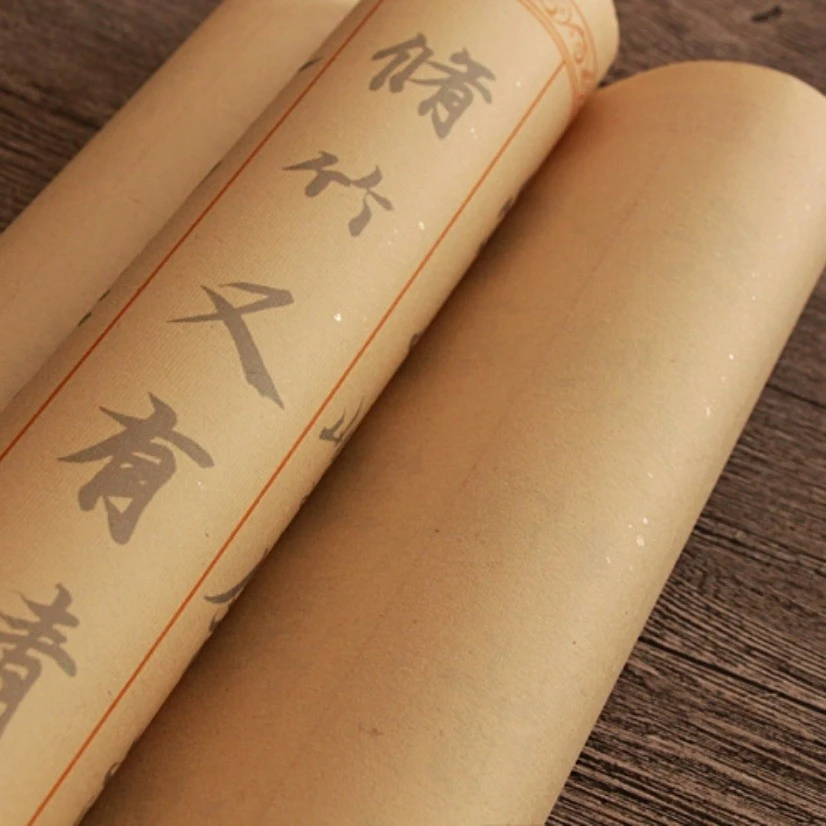 脩竹又有清